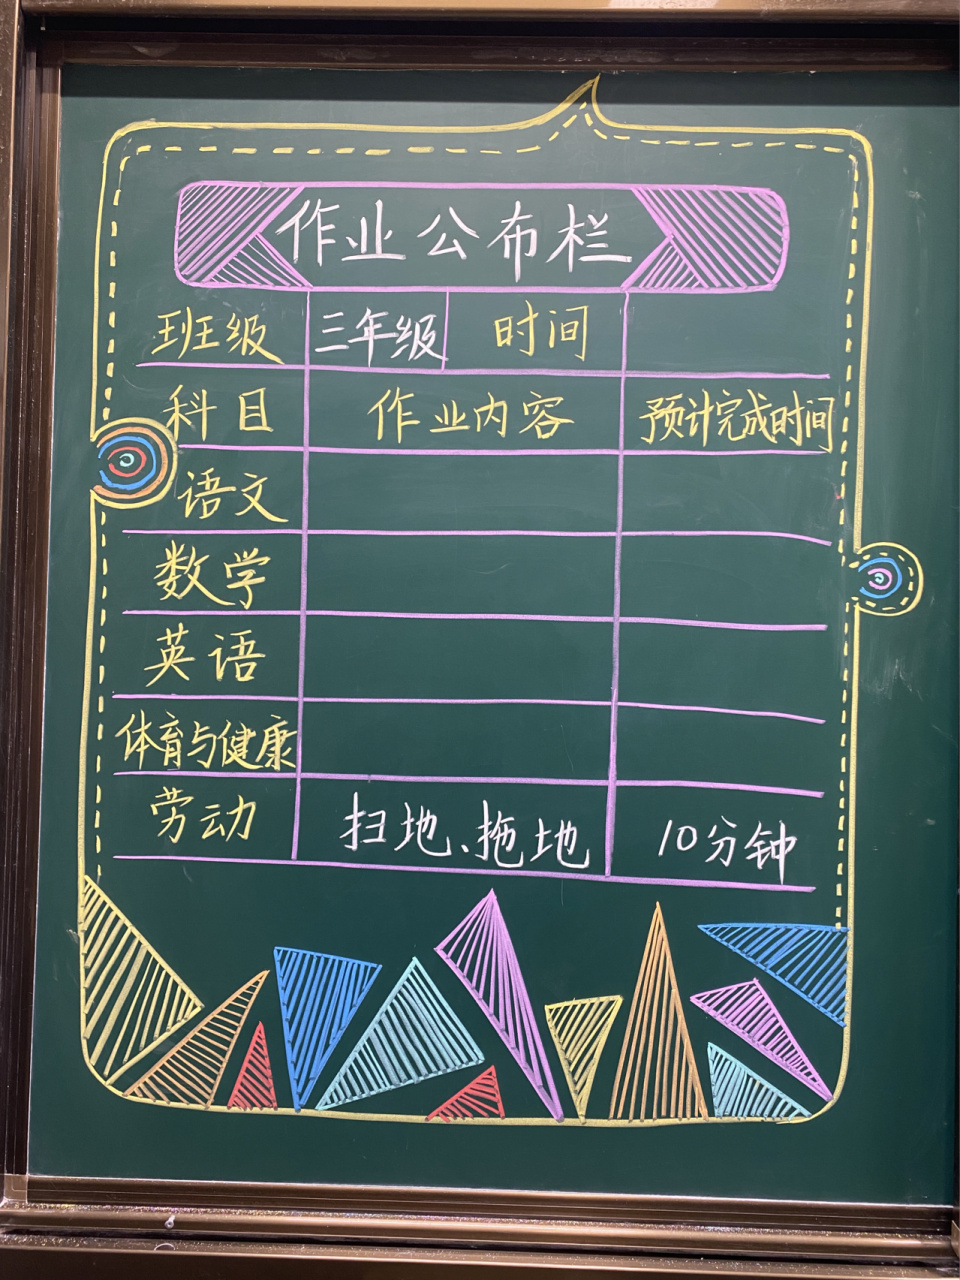 作业公布栏
班级 三年级 时间
科目 作业内容 预计完成时间
语文
数学
英语
体育与健康
劳动 扫地、拖地 10分钟